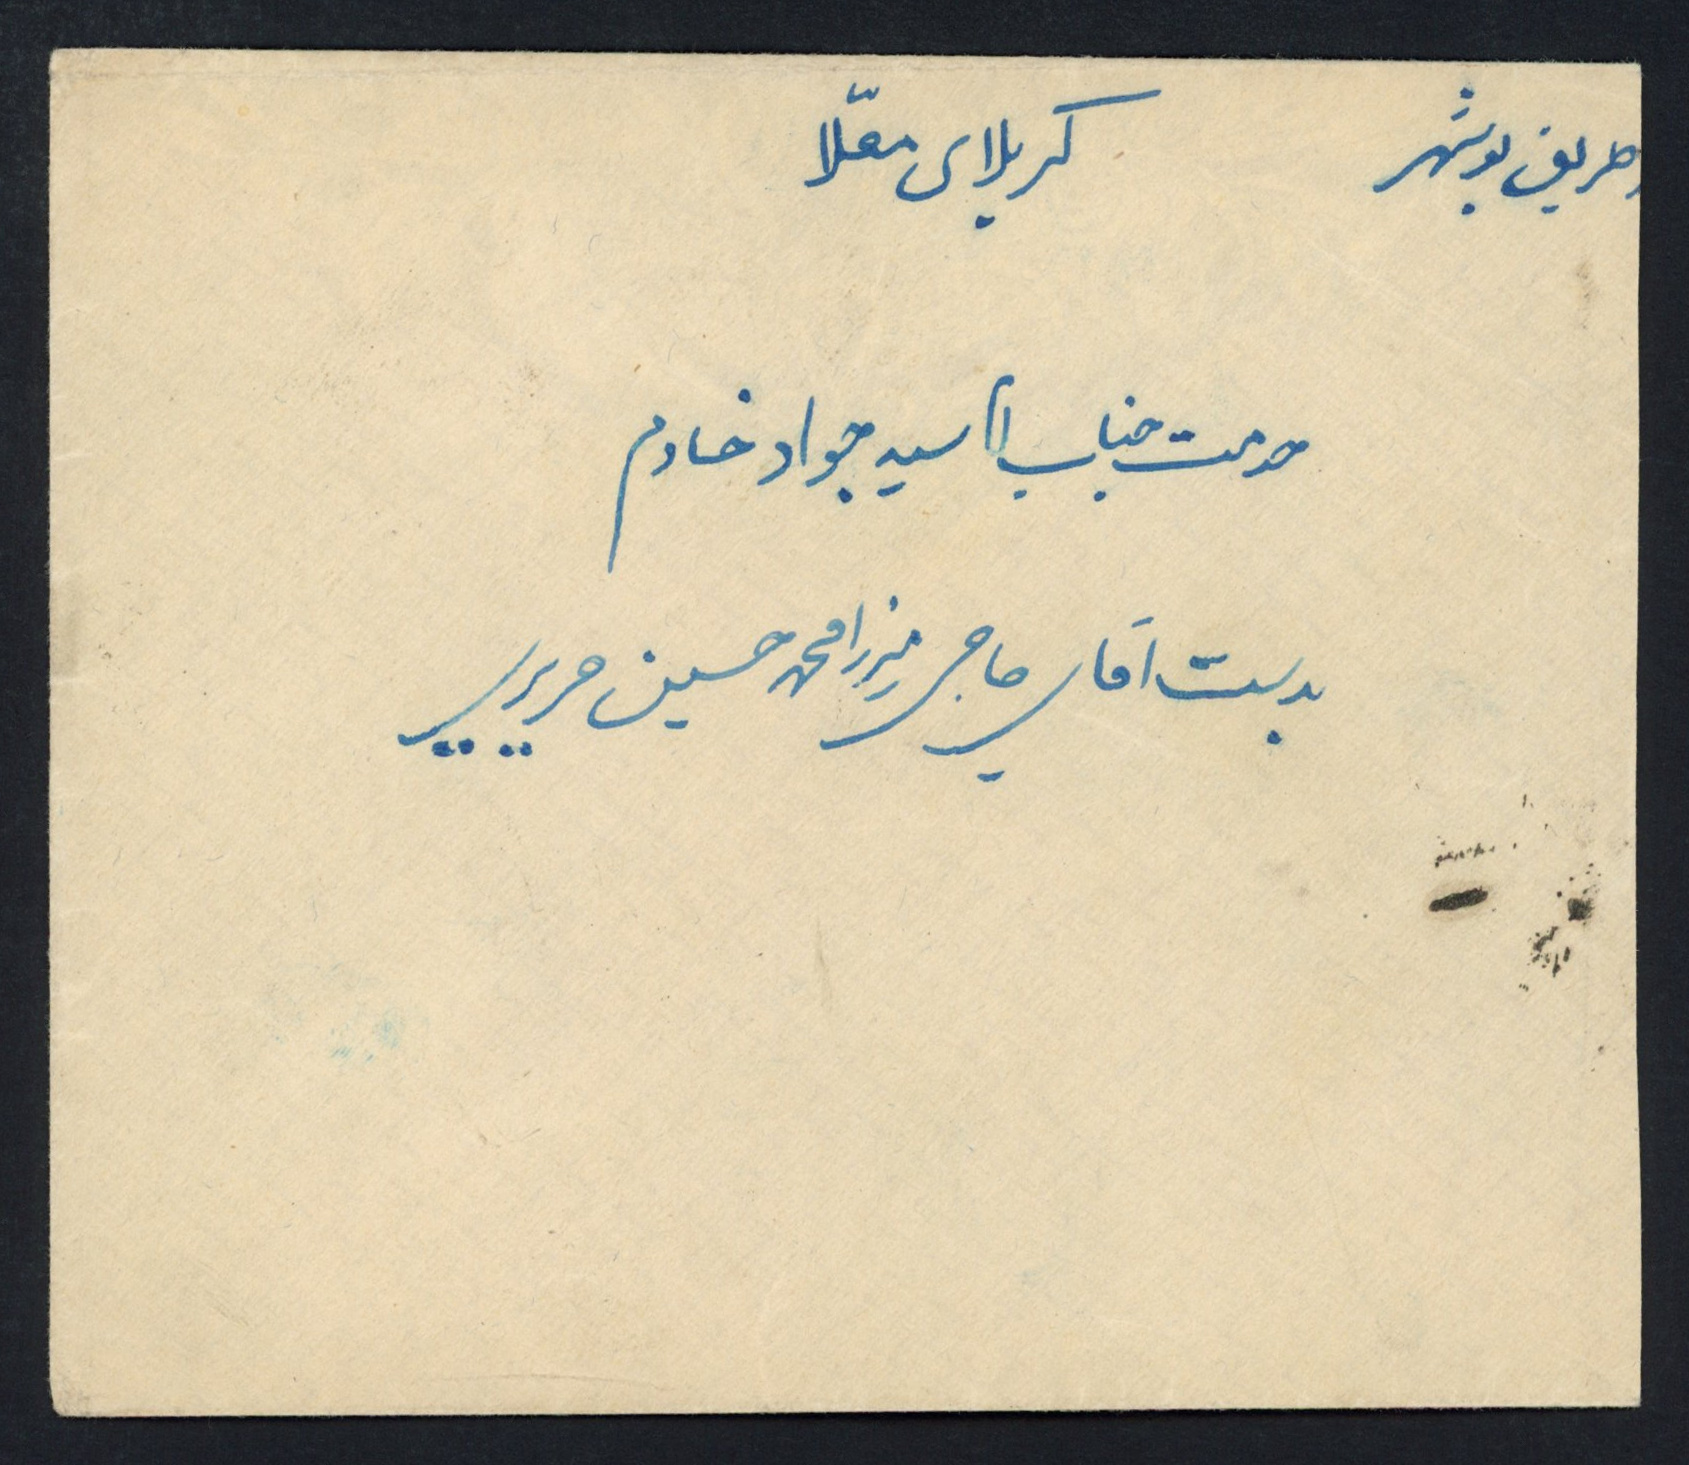 طریق بوشهر
کربلای معلّا
خدمت جناب آقا سید جواد خادم
بدست آقای حاجی میرزا محمد حسین حریری